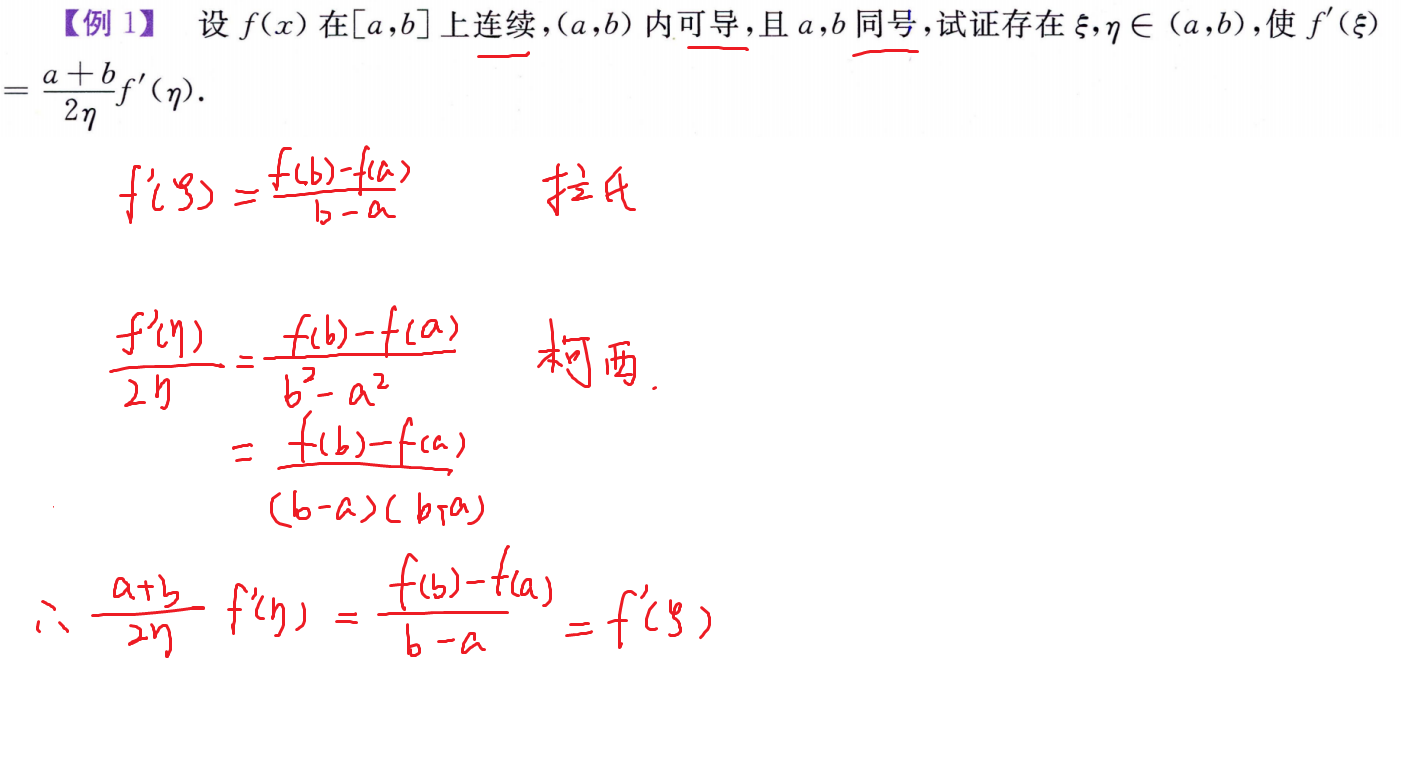 【例 1】 设 f(x) 在[a,b] 上连续,(a,b) 内可导,且 a,b 同号,试证存在 ξ,η ∈ (a,b),使 f′(ξ)
= \frac{a+b}{2η}f′(η).
f′(ξ) = \frac{f(b)-f(a)}{b-a} 拉氏
\frac{f′(η)}{2η} = \frac{f(b)-f(a)}{b²-a²} 柯西.
= \frac{f(b)-f(a)}{(b-a)(b+a)}
∴ \frac{a+b}{2η} f′(η) = \frac{f(b)-f(a)}{b-a} = f′(ξ)